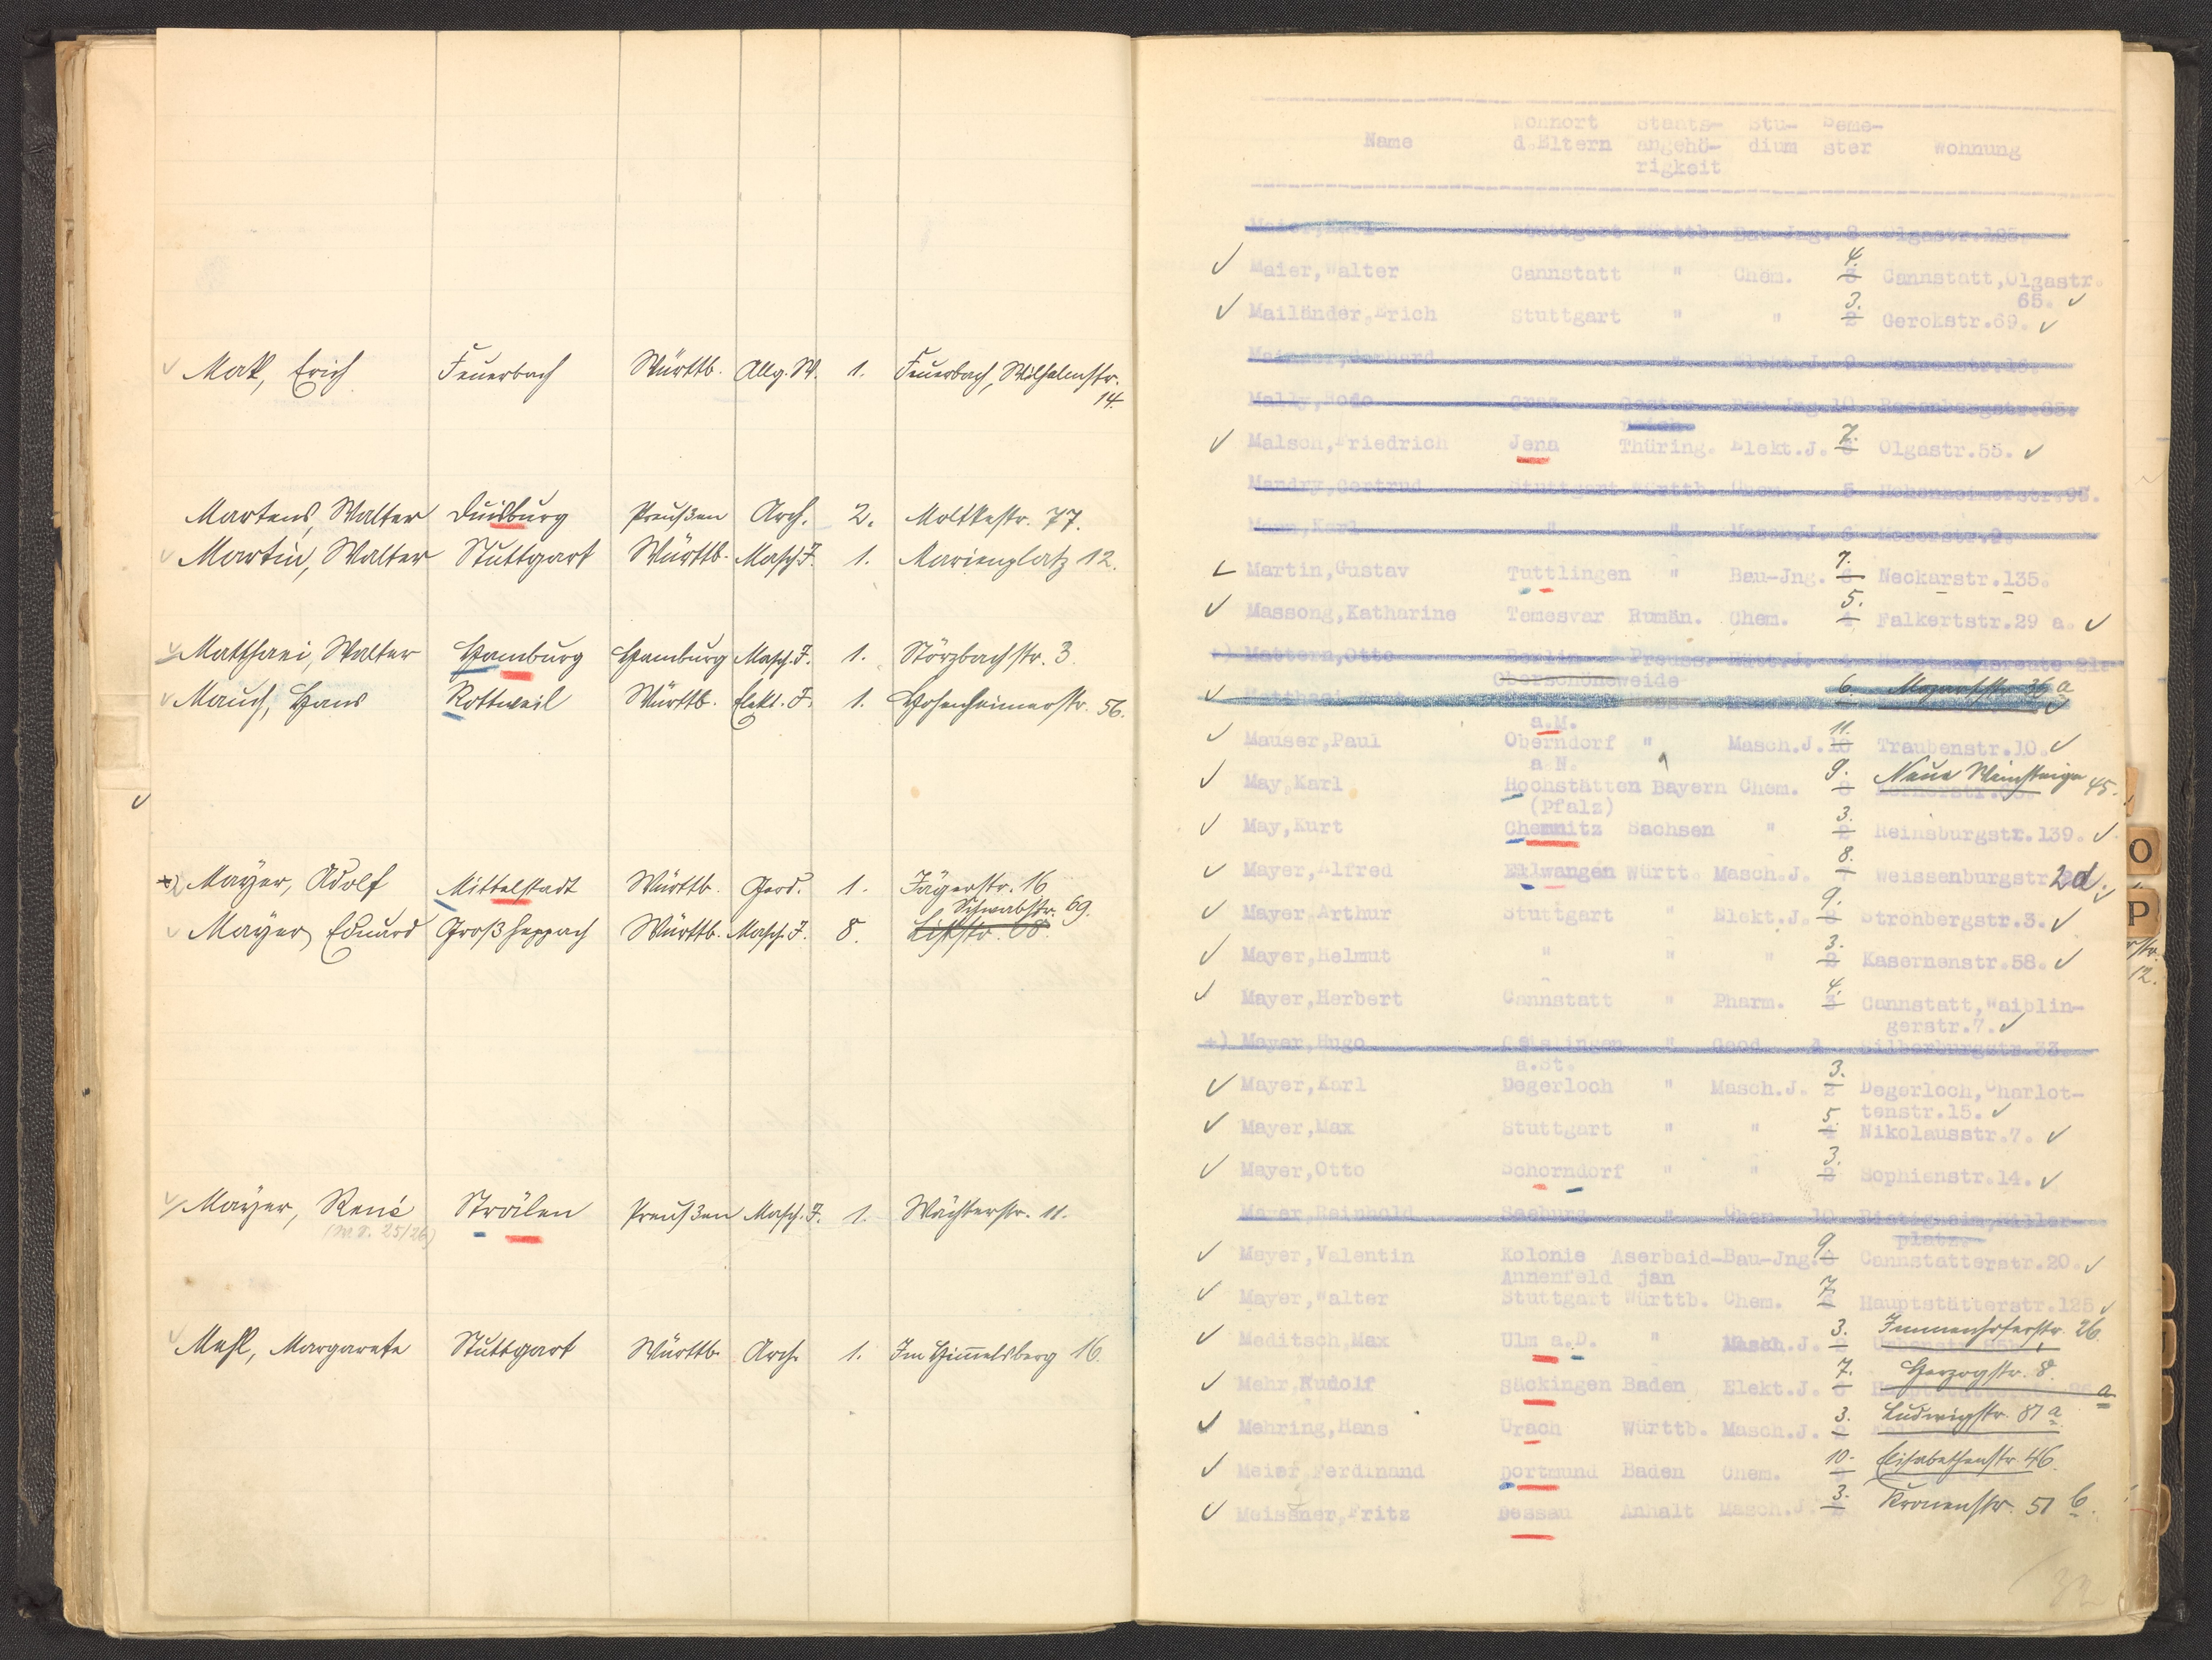 Mak, Erich Feuerbach Württb. Allg. W. 1. Feuerbach, Wilhelmstr.
14.
Martens, Walter Duisburg Preußen Arch. 2. Moltkestr. 77.
Martin, Walter Stuttgart Württb. Masch. J. 1. Marienplatz 12.
Matthaei, Walter Hamburg Hamburg Masch. J. 1. Störzbachstr. 3
Mauch, Hans Rottweil Württb. Elekt. J. 1. Hohenheimerstr. 56.
Mayer, Adolf Mittelstadt Württb. Geod. 1. Jägerstr. 16
Schwabstr. 69.
Mayer, Eduard Großheppach Württb. Masch. J. 8. Listr. 68.
Mayer, René Strälen Preußen Masch. J. 1. Wächterstr. 11.
Mehl, Margarete Stuttgart Württb. Arch. 1. Im Himmelsberg 16.
Wohnort Staats- Stu- Seme-
Name d.Eltern angehö- dium ster Wohnung
rigkeit
Maier,Karl Stuttgart Württb. Bau-Jng. 8 Olgastr.125.
4.
Maier,Walter Cannstatt " Chem. 3 Cannstatt,Olgastr.
65.
3.
Mailänder,Erich Stuttgart " " 2 Gerokstr.69.
Gerhard " " Elekt.J. 9
Mally,Bodo Graz Oester- Bau-Jng.10 Rosenbergstr.85.
reich
7.
Malsch,Friedrich Jena Thüring. Elekt.J. 6 Olgastr.55.
Mandry,Gertrud Stuttgart Württb. Chem. 5 Hohenheimerstr.93.
Mann,Karl " " Masch.J. 6 Mozartstr.9.
7.
Martin,Gustav Tuttlingen " Bau-Jng. 6 Neckarstr.135.
5.
Massong,Katharine Temesvar Rumän. Chem. 4 Falkertstr.29 a.
+) Mattern,Otto Berlin Preuss. Hütt.J.
Oberschöneweide
6. Mozartstr. 36 a
a.M.
11.
Mauser,Paul Oberndorf " Masch.J. 10 Traubenstr.10.
a N.
9. Neue Weinsteige 45.
May,Karl Hochstätten Bayern Chem. 8 Kernerstr.
(Pfalz)
3.
May,Kurt Chemnitz Sachsen " 2 Reinsburgstr.139.
8.
Mayer,Alfred Ellwangen Württ. Masch.J. 7 Weissenburgstr. 2d.
9.
Mayer,Arthur Stuttgart " Elekt.J. 8 Strohbergstr.3.
3.
Mayer,Helmut " " " 2 Kasernenstr.58.
4.
Mayer,Herbert Cannstatt " Pharm. 3 Cannstatt,Waiblin-
gerstr.7.
+) Mayer,Hugo Geislingen " Geod. 4 Silberburgstr.33.
a.St.
3.
Mayer,Karl Degerloch " Masch.J. 2 Degerloch,Charlot-
tenstr.15.
5.
Mayer,Max Stuttgart " " 4 Nikolausstr.7.
3.
Mayer,Otto Schorndorf " " 2 Sophienstr.14.
Mayer,Reinhold " Chem. 10 Bietigheim,Hiller-
platz.
9.
Mayer,Valentin Kolonie Aserbaid-Bau-Jng. 8 Cannstatterstr.20.
Annenfeld jan
7.
Mayer,Walter Stuttgart Württb. Chem. 6 Hauptstätterstr.125
3. Immenhoferstr. 26.
Meditsch,Max Ulm a.D. " Masch.J. 2
7. Herzogstr. 8. a
Mehr,Rudolf Säckingen Baden Elekt.J. 6
3. Ludwigstr. 81 a
Mehring,Hans Urach Württb. Masch.J. 2
10. Elisabethenstr. 46.
Meier,Ferdinand Dortmund Baden Chem. 9
3. Kronenstr. 51 b.
Meissner,Fritz Dessau Anhalt Masch.J. 2
O
P